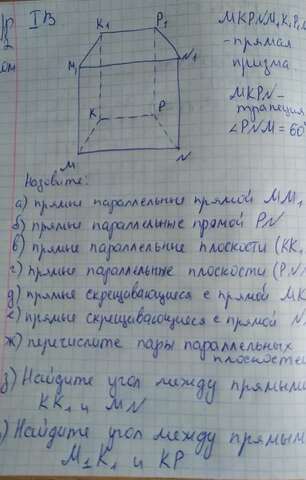 IВ
K₁ P₁
M₁ N₁
K P
M N
MKPNM₁K₁P₁
- прямая
призма
MKPN-
трапеция
∠PNM = 60°
Назовите:
а) прямые параллельные прямой MM₁
б) прямые параллельные прямой PN
в) прямые параллельные плоскости (KK₁
г) прямые параллельные плоскости (PN
д) прямые скрещивающиеся с прямой MK
е) прямые скрещивающиеся с прямой N
ж) перечислите пары параллельных
плоскостей
з) Найдите угол между прямыми
KK₁ и MN
) Найдите угол между прямым
M₁K₁ и KP